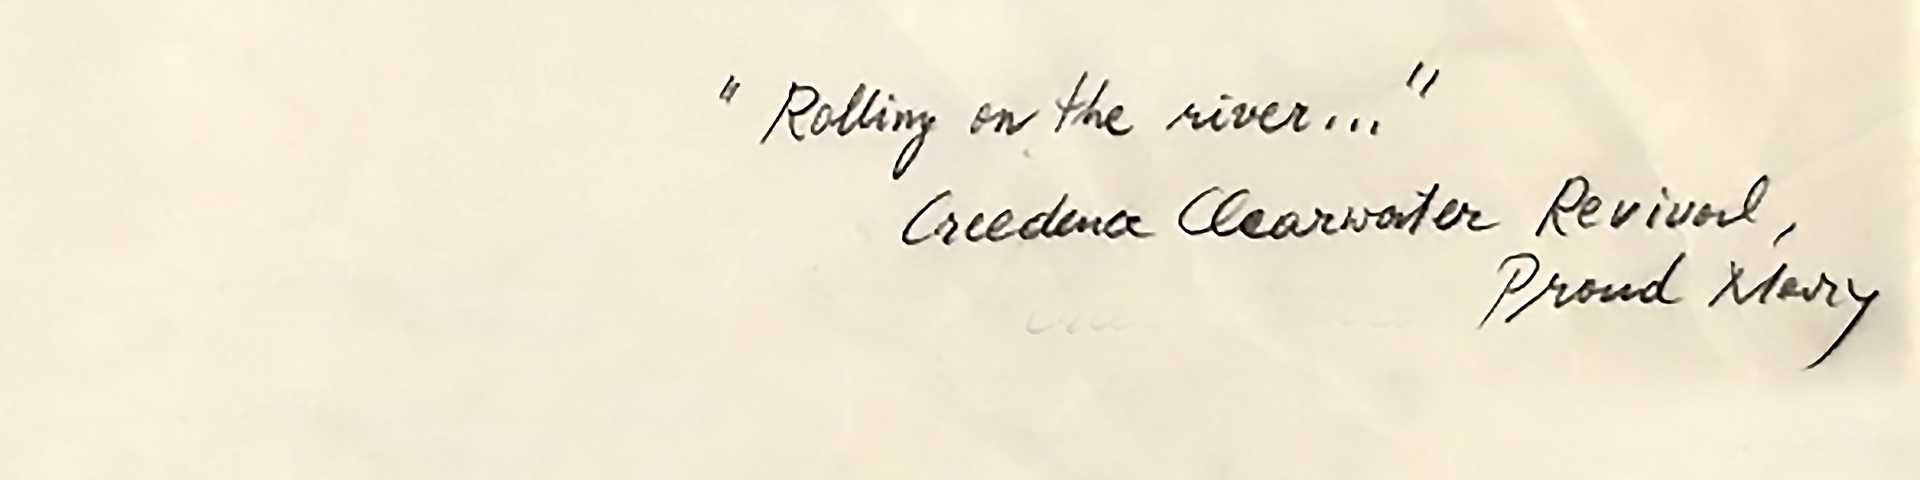 "Rolling on the river..."
Creedence Clearwater Revival,
Proud Mary